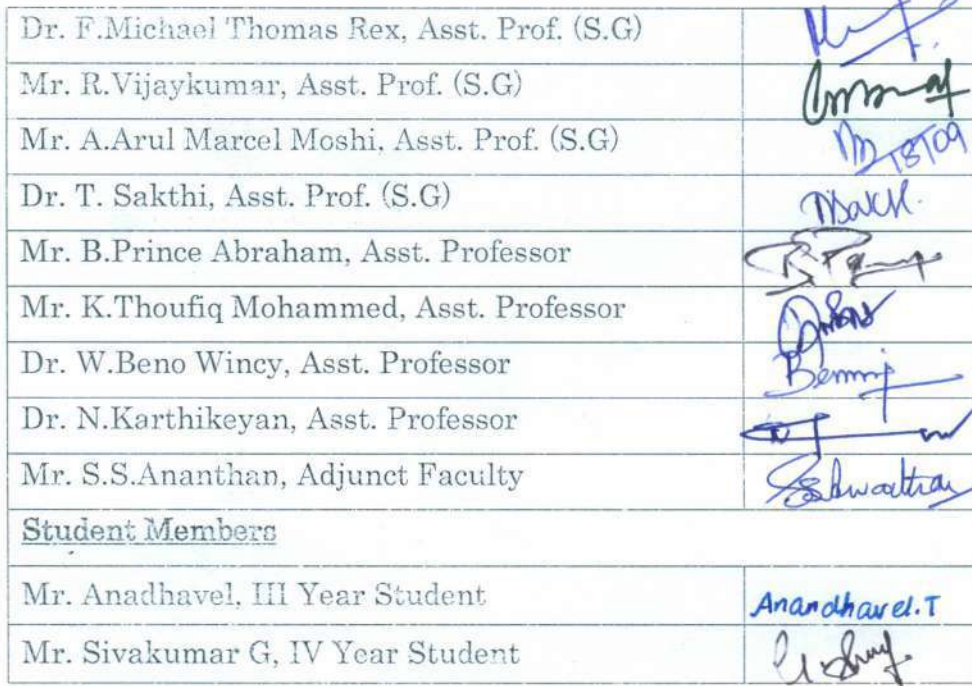 Dr. F.Michael Thomas Rex, Asst. Prof. (S.G)
Mr. R.Vijaykumar, Asst. Prof. (S.G)
Mr. A.Arul Marcel Moshi, Asst. Prof. (S.G)
Dr. T. Sakthi, Asst. Prof. (S.G)
Mr. B.Prince Abraham, Asst. Professor
Mr. K.Thoufiq Mohammed, Asst. Professor
Dr. W.Beno Wincy, Asst. Professor
Dr. N.Karthikeyan, Asst. Professor
Mr. S.S.Ananthan, Adjunct Faculty
Student Members
Mr. Anadhavel, III Year Student Anandhavel.T
Mr. Sivakumar G, IV Year Student